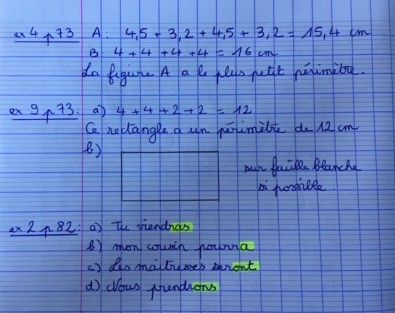 ex 4 p 73 A: 4,5 + 3,2 + 4,5 + 3,2 = 15,4 cm
B: 4 + 4 + 4 + 4 = 16 cm
La figure A a le plus petit périmètre.
ex 9 p 73: a) 4 + 4 + 2 + 2 = 12
Ce rectangle a un périmètre de 12 cm
b)
sur feuille blanche
si possible.
ex 2 p 82: a) Tu viendras
b) mon cousin pourra
c) Les maitresses seront
d) Nous prendrons